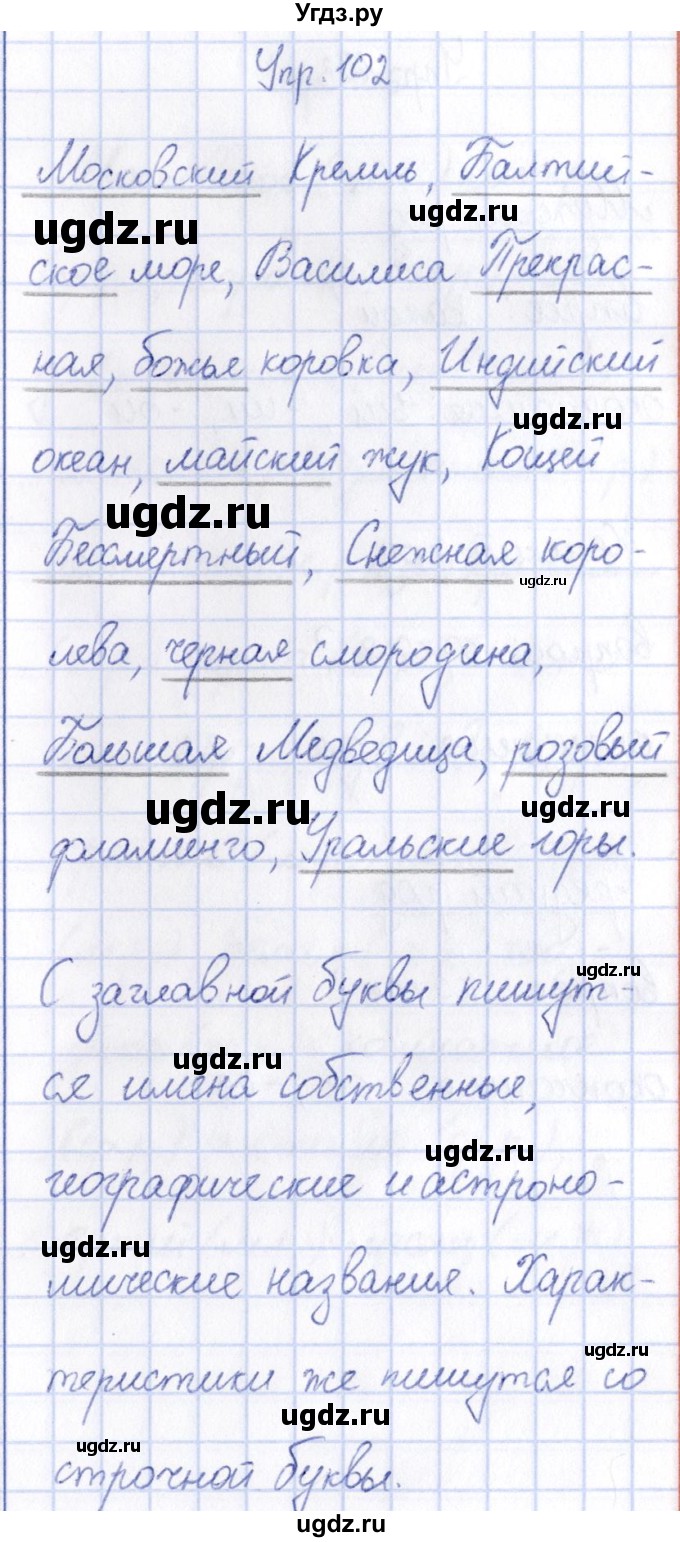 Угдз.ру
Упр. 102
Московский Кремль, Балтий-
ugdz.ru
ugdz.ru
ское море, Василиса Прекрас-
ная, божье коровка, Индийский
ugdz.ru
океан, майский жук, Кощей
ugdz.ru
Бессмертный, Снежная коро-
ugdz.ru
лева, черная смородина,
Большая Медведица, розовый
ugdz.ru
ugdz.ru
фламинго, Уральские горы.
ugdz.ru
С заглавной буквы пишут-
ugdz.ru
ся имена собственные,
ugdz.ru
географические и астроно-
ugdz.ru
мические названия. Харак-
ugdz.ru
теристики же пишутся со
ugdz.ru
ugdz.ru
строчной буквы.
ugdz.ru